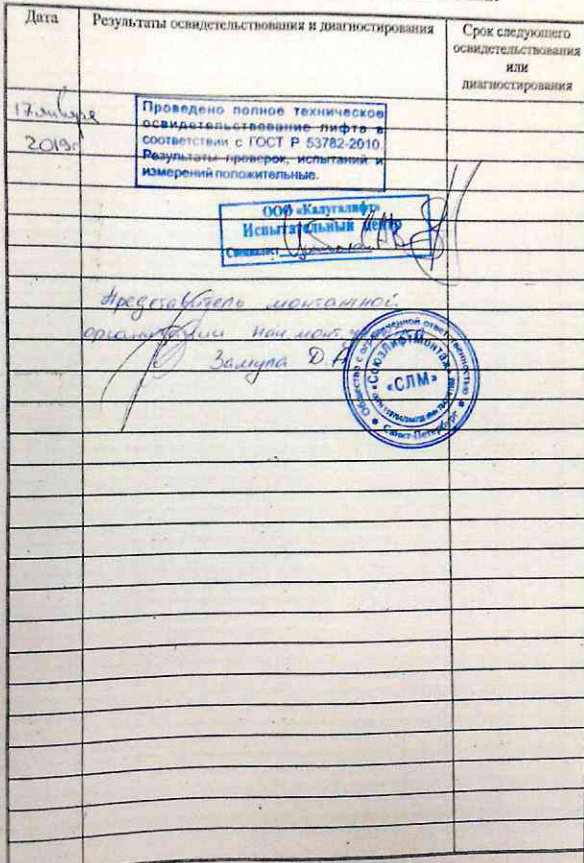 Дата
Результаты освидетельствования и диагностирования
Срок следующего
освидетельствования
или
диагностирования
17 января
2019г
Проведено полное техническое
освидетельствование лифта в
соответствии с ГОСТ Р 53782-2010.
Результаты проверок, испытаний и
измерений положительные.
ООО «Калугалифт»
Испытательный центр
Специалист
Представитель монтажной
организации
Замула Д.А
Общество с ограниченной ответственностью
«СоюзЛифтМонтаж»
«СЛМ»
Санкт-Петербург